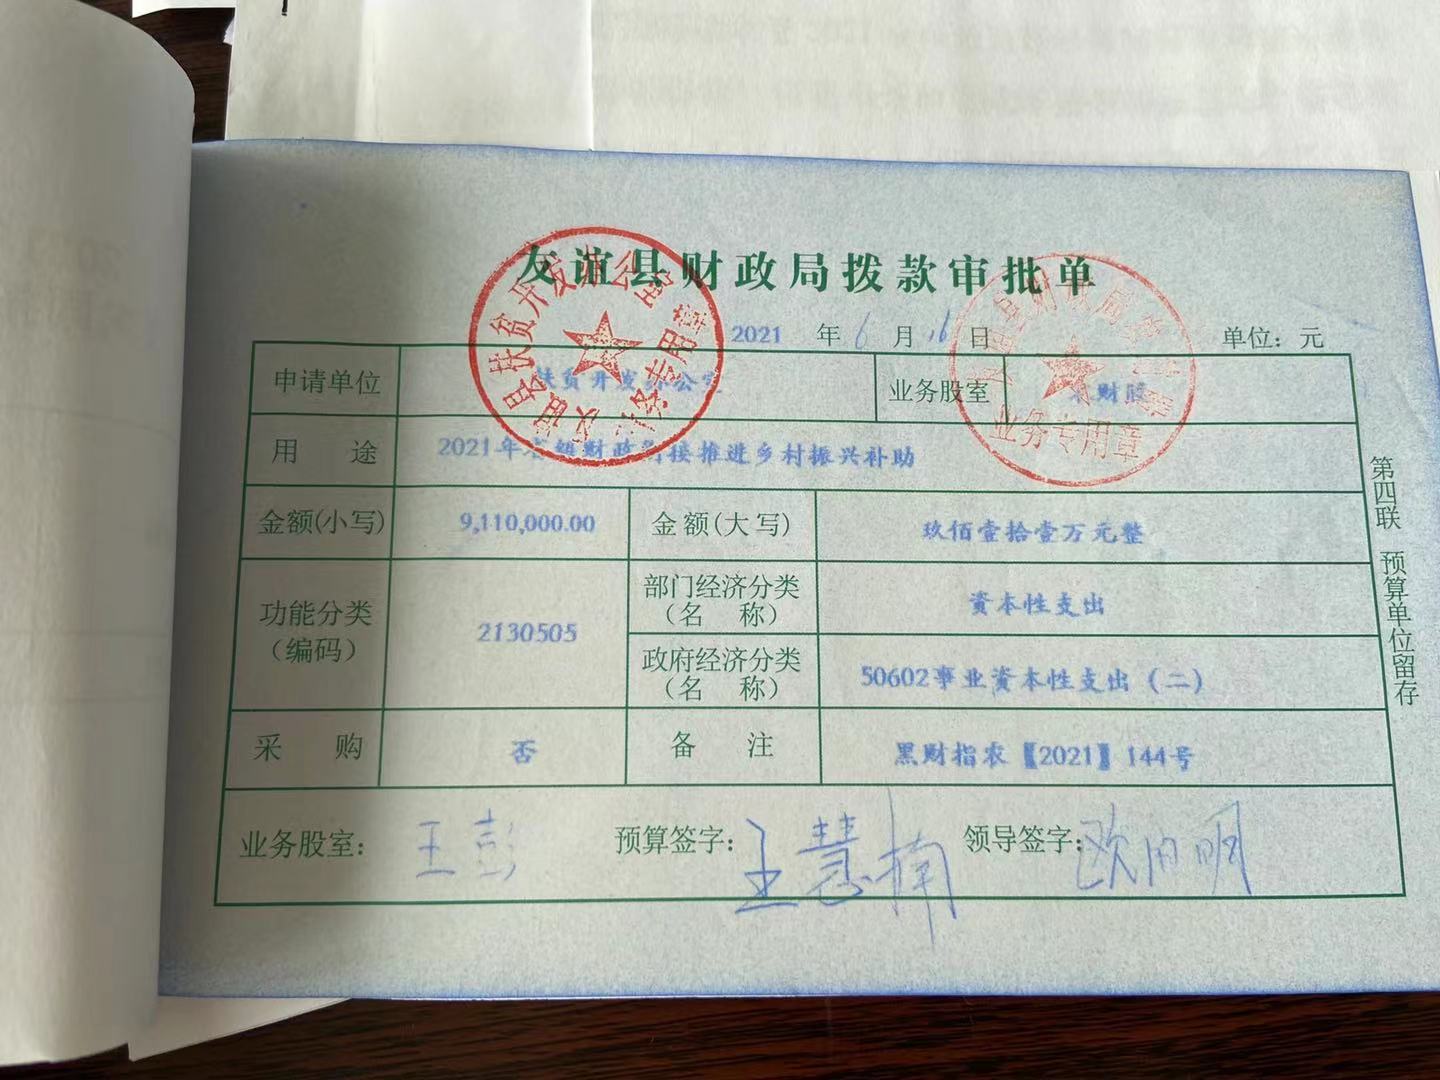 友谊县财政局拨款审批单
2021 年 6 月 16 日 单位：元
申请单位 扶贫开发办公室 业务股室 农财股
用 途 2021年省级财政衔接推进乡村振兴补助
金额(小写) 9,110,000.00 金额(大写) 玖佰壹拾壹万元整
功能分类
（编码） 2130505
部门经济分类
（名 称） 资本性支出
政府经济分类
（名 称） 50602事业资本性支出（二）
采 购 否 备 注 黑财指农【2021】144号
业务股室： 王彭 预算签字： 王慧楠 领导签字： 欧阳明
第四联 预算单位留存
友谊县扶贫开发办公室
拨款专用章
友谊县财政局
业务专用章